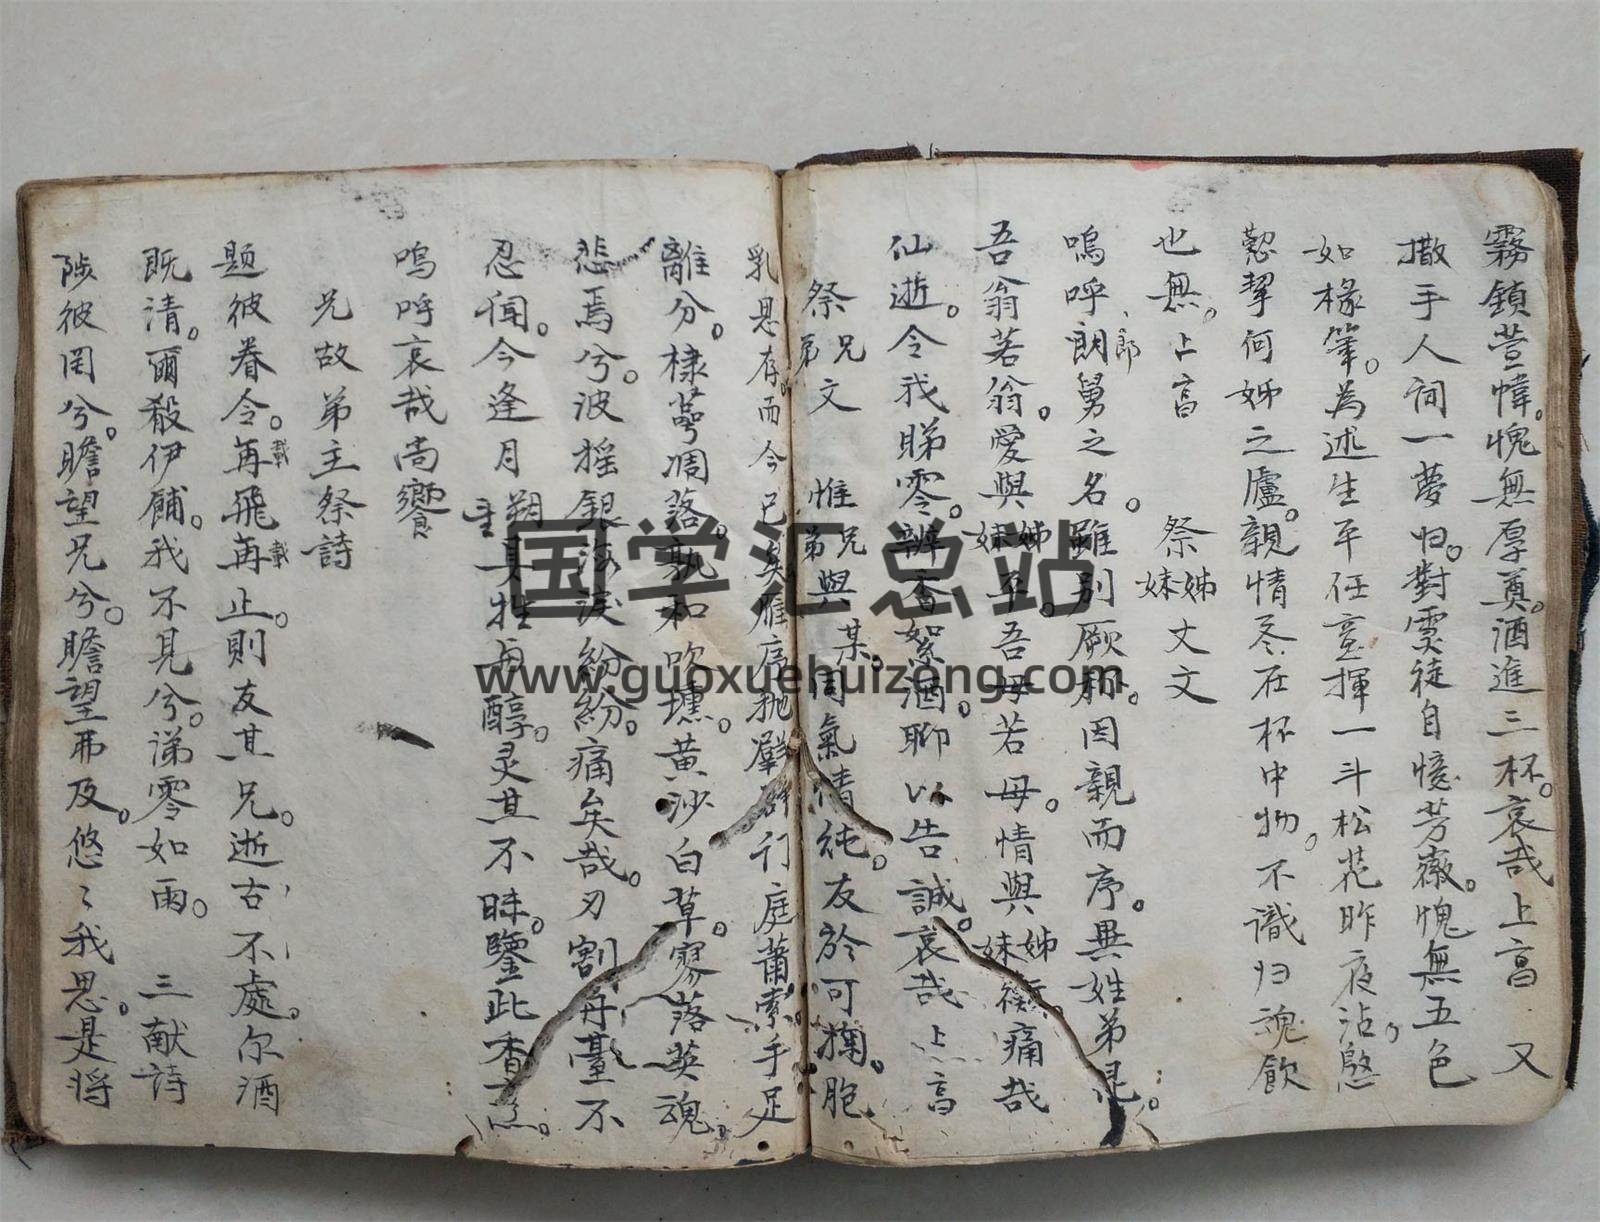 霧鎖萱幃。愧無厚奠。酒進三杯。哀哉上亯 又
撒手人詞一夢归。對霊徒自憶芳薇。愧無五色
如椽筆。為述生平任意揮一斗松花昨夜沽。慇
懃挈何姊之廬。親情尽在杯中物。不識归魂飲
也無。上亯 祭姊妹丈文
嗚呼朗郎舅之名。雖別厥称。因親而序。異姓弟昆。
吾翁若翁。愛與姊妹平。吾母若母。情與姊妹衡痛哉
仙逝。令我睇零。辦香絮酒。聊以告誠。哀哉上亯
祭兄弟文 惟兄弟與某。同氣情純。友於可掬。胞
乳恩存。而今已矣雁序抛羣群行庭蕭索。手足
離分。棣萼凋落。孰和吹壎。黄沙白草。寥落英魂。
悲焉兮。波摇銀海淚紛紛。痛矣哉。刃割丹臺不
忍闻。今逢月朔望具牲与醇。灵其不昧。鑒此香
嗚呼哀哉尚饗
兄故弟主祭詩
题彼眷令。再載飛再載止。則友其兄。逝古不處。尔酒
既清。爾殺伊餔。我不見兮。涕零如雨。 三献詩
陟彼罔兮。瞻望兄兮。瞻望弗及。悠〻我思。是将
国学汇总站
www.guoxuehuizong.com